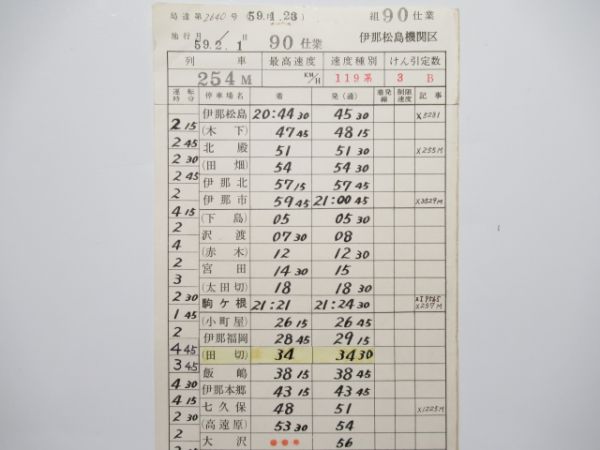 局達第2640号(59.1.23) 組90仕業
施行 月 日 59.2.1 90仕業 伊那松島機関区
列車 最高速度 速度種別 けん引定数
254M KM/H 119系 3 B
運転時分 停車場名 着 発(通) 着発線 制限速度 記事
伊那松島 20:44 30 45 30
2 15
(木下) 47 45 48 15
2 45
北殿 51 51 30 X255M
2 30
(田畑) 54 54 30
2 45
伊那北 57 15 57 45
2
伊那市 59 45 21:00 45
4 15
(下島) 05 05 30
2
沢渡 07 30 08
4
(赤木) 12 12 30
2
宮田 14 30 15
3
(太田切) 18 18 30
2 30
駒ケ根 21:21 21:24 30 X257M
1 45
(小町屋) 26 15 26 45
2
伊那福岡 28 45 29 15
4 45
(田切) 34 34 30
3 45
飯嶋 38 15 38 45
4 30
伊那本郷 43 15 43 45
4 15
七久保 48 51 X1225M
2 30
(高遠原) 53 30 54
2
大沢 ●●● 56